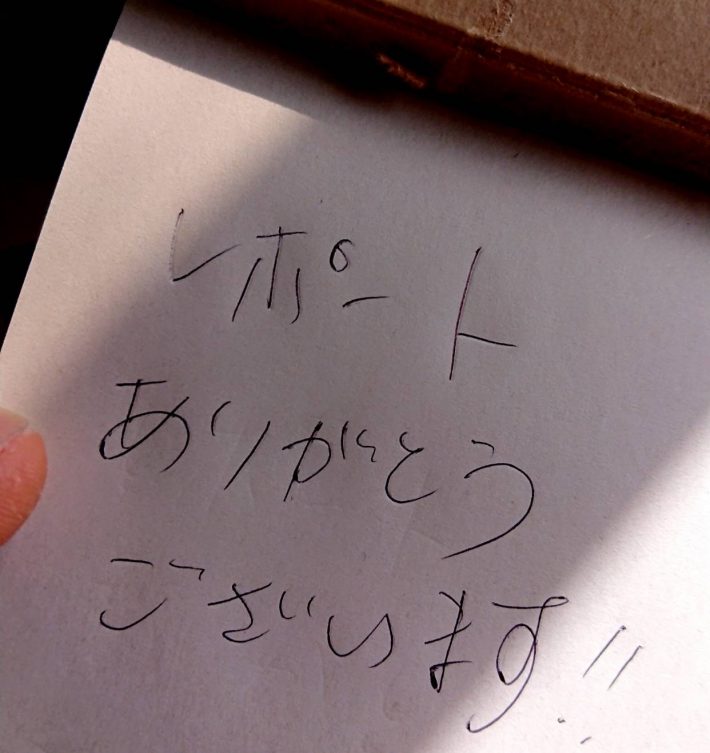 レポート
ありがとう
ございます!!